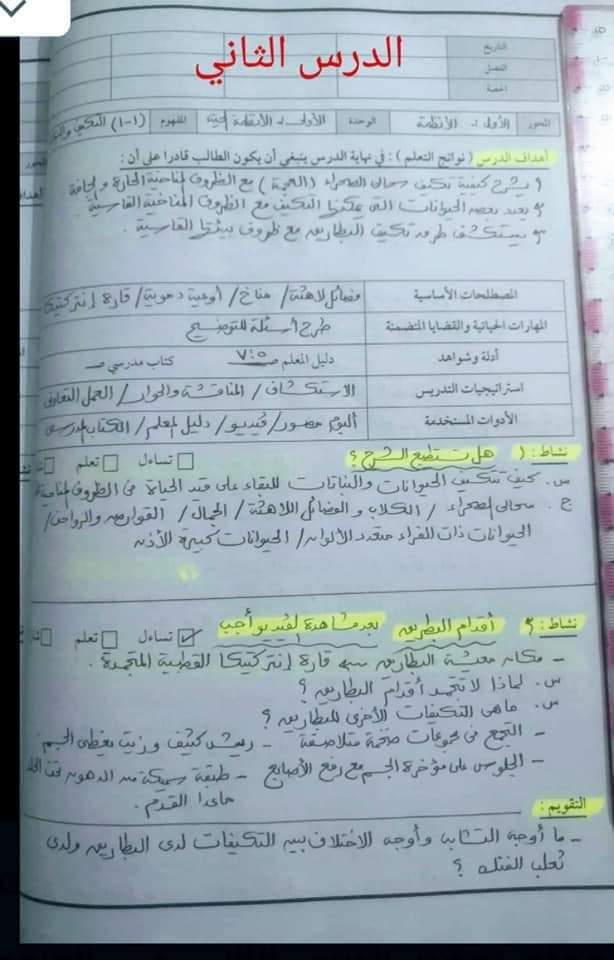 الدرس الثاني
التاريخ
الفصل
الحصة
المحور الأول :- الأنظمة الوحدة الأولى :- الأنظمة الحية المفهوم (١-١) التكيف
أهداف الدرس ( نواتج التعلم ) : في نهاية الدرس ينبغي أن يكون الطالب قادرا على أن :
١ يشرح كيفية تكيف سحالي الصحراء (العجمة) مع الظروف المناخية الحارة والجافة
٢ يعدد بعض الحيوانات التي يمكنها التكيف مع الظروف المناخية القاسية.
٣ يستكشف طرق تكيف البطاريق مع ظروف بيئتها القاسية .
المصطلحات الأساسية فصائل لاهثة / مناخ / أوعية دموية / قارة إنتركتيكا
المهارات الحياتية والقضايا المتضمنة طرح أسئلة للتوضيح
أدلة وشواهد دليل المعلم صـ ٧٠٥ كتاب مدرسي صـ
استراتيجيات التدريس الاستكشاف / المناقشة والحوار / العمل التعاوني
الأدوات المستخدمة ألبوم مصور / فيديو / دليل المعلم / الكتاب المدرسي
نشاط : ١ هل تستطيع الشرح ؟ تساءل تعلم
س. كيف تتكيف الحيوانات والنباتات للبقاء على قيد الحياة في الظروف المناخية
ج. سحالي الصحراء / الكلاب والفصائل اللاهثة / الجمال / القوارض والزواحف /
الحيوانات ذات الفراء متعدد الألوان / الحيوانات كبيرة الأذن
نشاط : ٢ أقدام البطريق بعد مشاهدة الفيديو أجب تساءل تعلم
- مكان معيشة البطاريق قارة إنتركتيكا القطبية المتجمدة .
س. لماذا لا تتجمد أقدام البطاريق ؟
س. ماهى التكيفات الأخرى للبطاريق ؟
- التجمع في مجموعات ضخمة متلاصقة - ريش كثيف وزيت يغطى الجسم
- الجلوس على مؤخرة الجسم مع رفع الأصابع - طبقة سميكة من الدهون تحت الجلد
ماعدا القدم .
التقويم :
- ما أوجه التشابه وأوجه الاختلاف بين التكيفات لدى البطاريق ولدى
ثعلب الفنك ؟